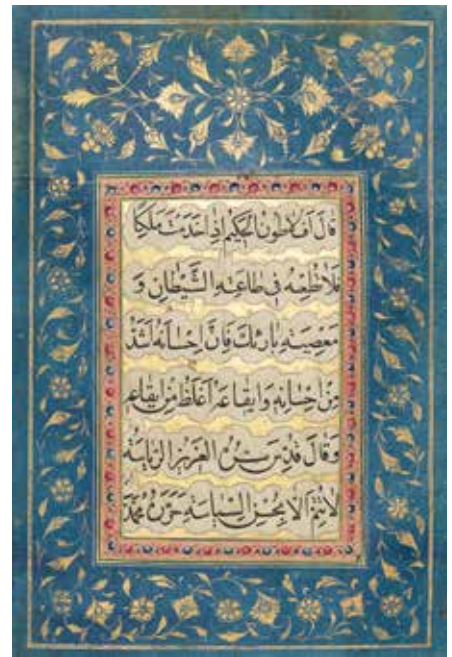 قال افلاطون الحكيم اذا خدمت ملكا
فلا تطعه في طاعته الشيطان و
معصيته بارئك فان احسانه لشد
من احسانه وايقاعه اغلظ من ايقاعه
وقال العزيز الرياسة
لا تتم الا بحسن السياسة حرره محمد